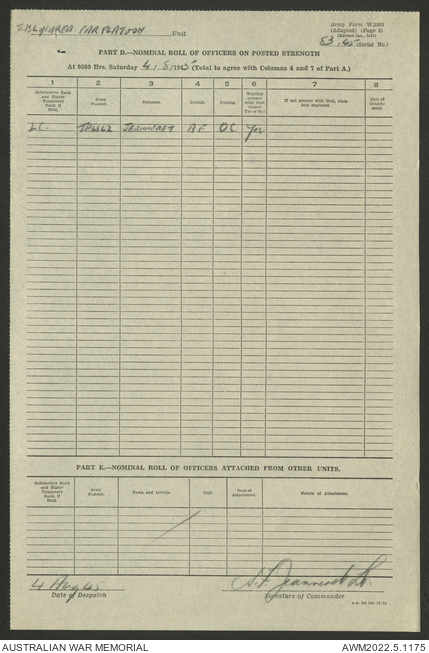 Unit
Army Form W.3008
(Adapted) (Page 2)
83/45 (Serial No.)
PART D.—NOMINAL ROLL OF OFFICERS ON POSTED STRENGTH
At 0600 Hrs. Saturday 4/8/1945 (Total to agree with Columns 4 and 7 of Part A.)
1 2 3 4 5 6 7 8
Substantive Rank and Higher Temporary Rank if Held.
Army Number.
Surname.
Initials.
Posting.
Whether present with Unit (Insert Yes or No)
If not present with Unit, state how employed.
Date of Detachment.
JEANNERET AF OC Yes
PART E.—NOMINAL ROLL OF OFFICERS ATTACHED FROM OTHER UNITS.
Substantive Rank and Higher Temporary Rank if Held.
Army Number.
Name and Initials.
Unit.
Date of Attachment.
Nature of Attachment.
4 Aug 45
A.F. Jeanneret Lt
Date of Despatch
Signature of Commander
AUSTRALIAN WAR MEMORIAL
AWM2022.5.1175